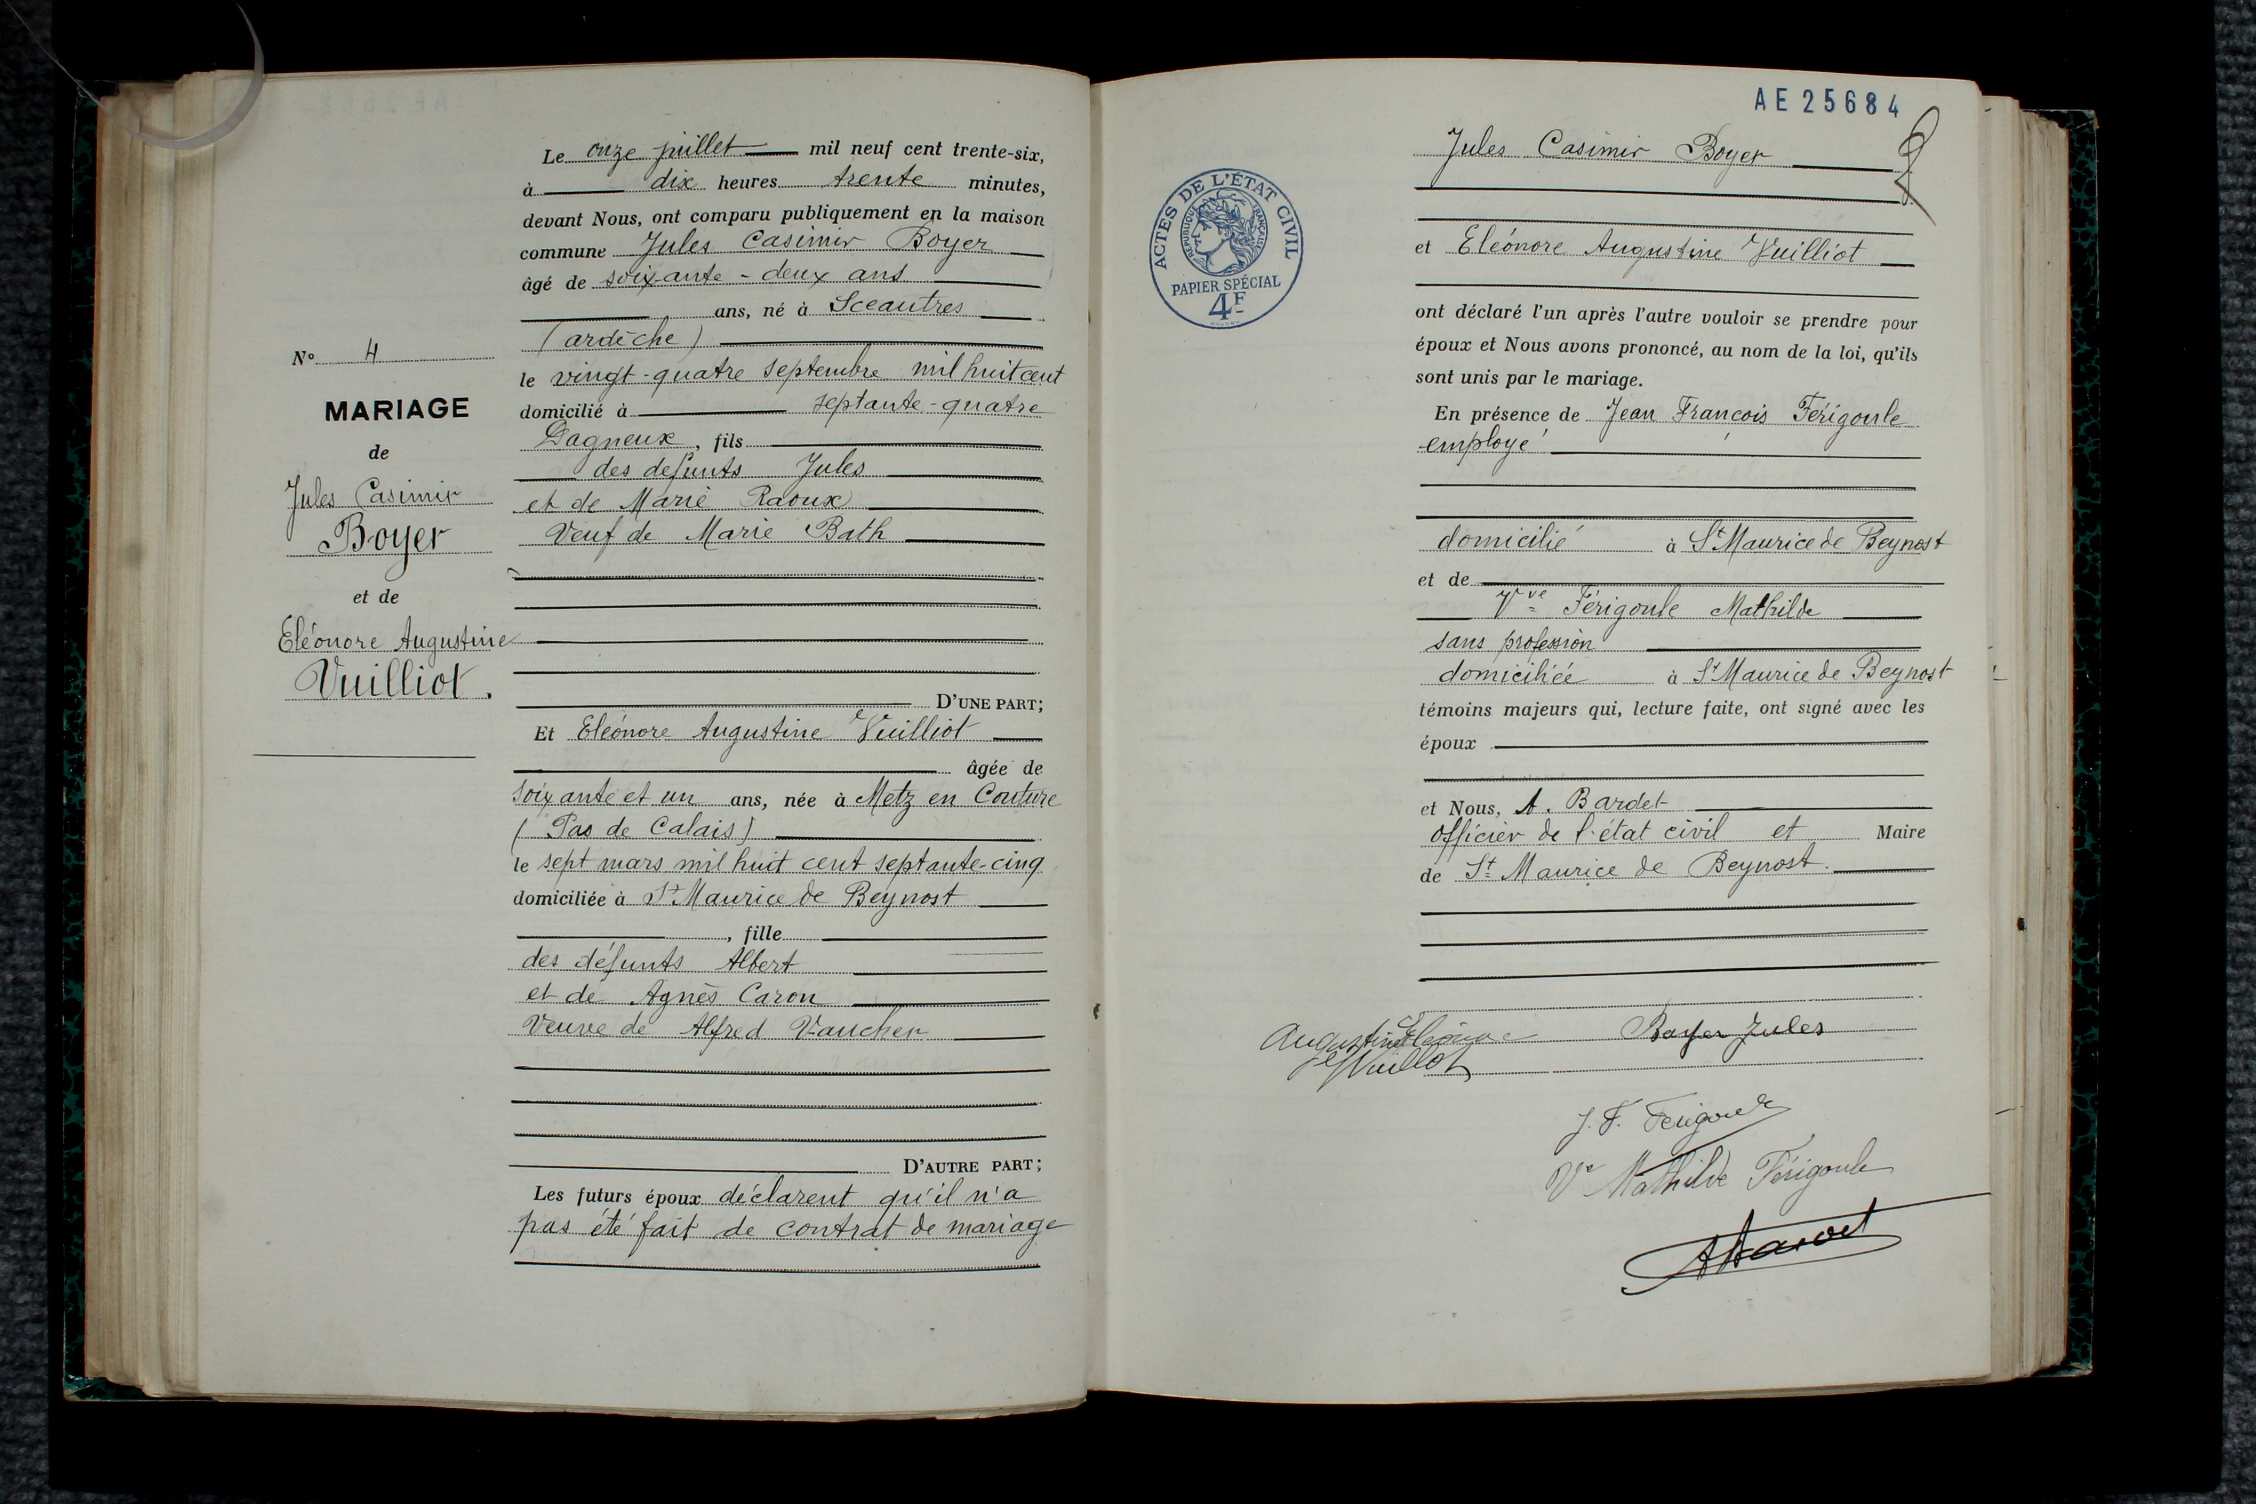 N° 4
MARIAGE
de
Jules Casimir
Boyer
et de
Eléonore Augustine
Vuilliot.
Le onze juillet mil neuf cent trente-six,
à dix heures trente minutes,
devant Nous, ont comparu publiquement en la maison
commune Jules Casimir Boyer
âgé de soixante-deux ans
ans, né à Sceautres
(ardèche)
le vingt-quatre septembre mil huit cent
domicilié à septante-quatre
Dagneux, fils
des defunts Jules
et de Marie Raoux
Veuf de Marie Bath
D'UNE PART;
Et Eléonore Augustine Vuilliot
âgée de
soixante et un ans, née à Metz en Couture
(Pas de Calais)
le sept mars mil huit cent septante-cinq
domiciliée à St Maurice de Beynost
, fille
des défunts Albert
et de Agnès Caron
Veuve de Alfred Vaucher
D'AUTRE PART;
Les futurs époux déclarent qu'il n'a
pas été fait de contrat de mariage
AE 25684
ACTES DE L'ÉTAT CIVIL
RÉPUBLIQUE FRANÇAISE
PAPIER SPÉCIAL
4F
Jules Casimir Boyer
et Eléonore Augustine Vuilliot
ont déclaré l'un après l'autre vouloir se prendre pour
époux et Nous avons prononcé, au nom de la loi, qu'ils
sont unis par le mariage.
En présence de Jean François Férigoule
employé
domicilié à St Maurice de Beynost
et de
Vve Férigoule Mathilde
sans profession
domiciliée à St Maurice de Beynost
témoins majeurs qui, lecture faite, ont signé avec les
époux
et Nous, A. Bardet
officier de l'état civil et Maire
de St Maurice de Beynost.
Augustine Eléonore Boyer Jules
Vuillot
J. F. Ferigoule
Ve Mathilde Férigoule